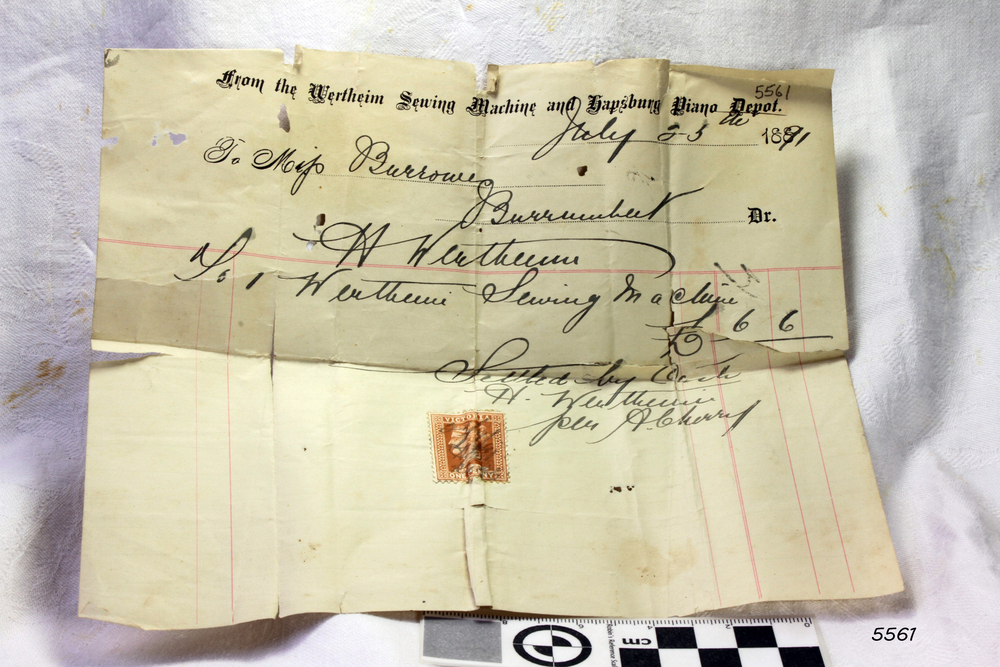 5561
From the Wertheim Sewing Machine and Hapsburg Piano Depot.
July 25th 1891
To Miss Burrowe
Burrumbeet Dr.
H Wertheim
To 1 Wertheim Sewing Machine
6 6
Settled by Cash
H. Wertheim
per A. Cherry
VICTORIA
cm
5561